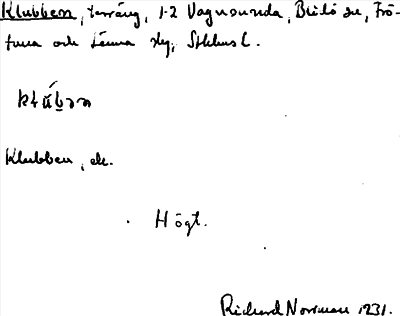 Klubben, terräng, 1-2 Vagnsunda, Blidö sn, Frö-
tuna och Länna slg, Sthlms l.
klúbən
Klubben, de.
Högt.
Richard Norrman 1931.